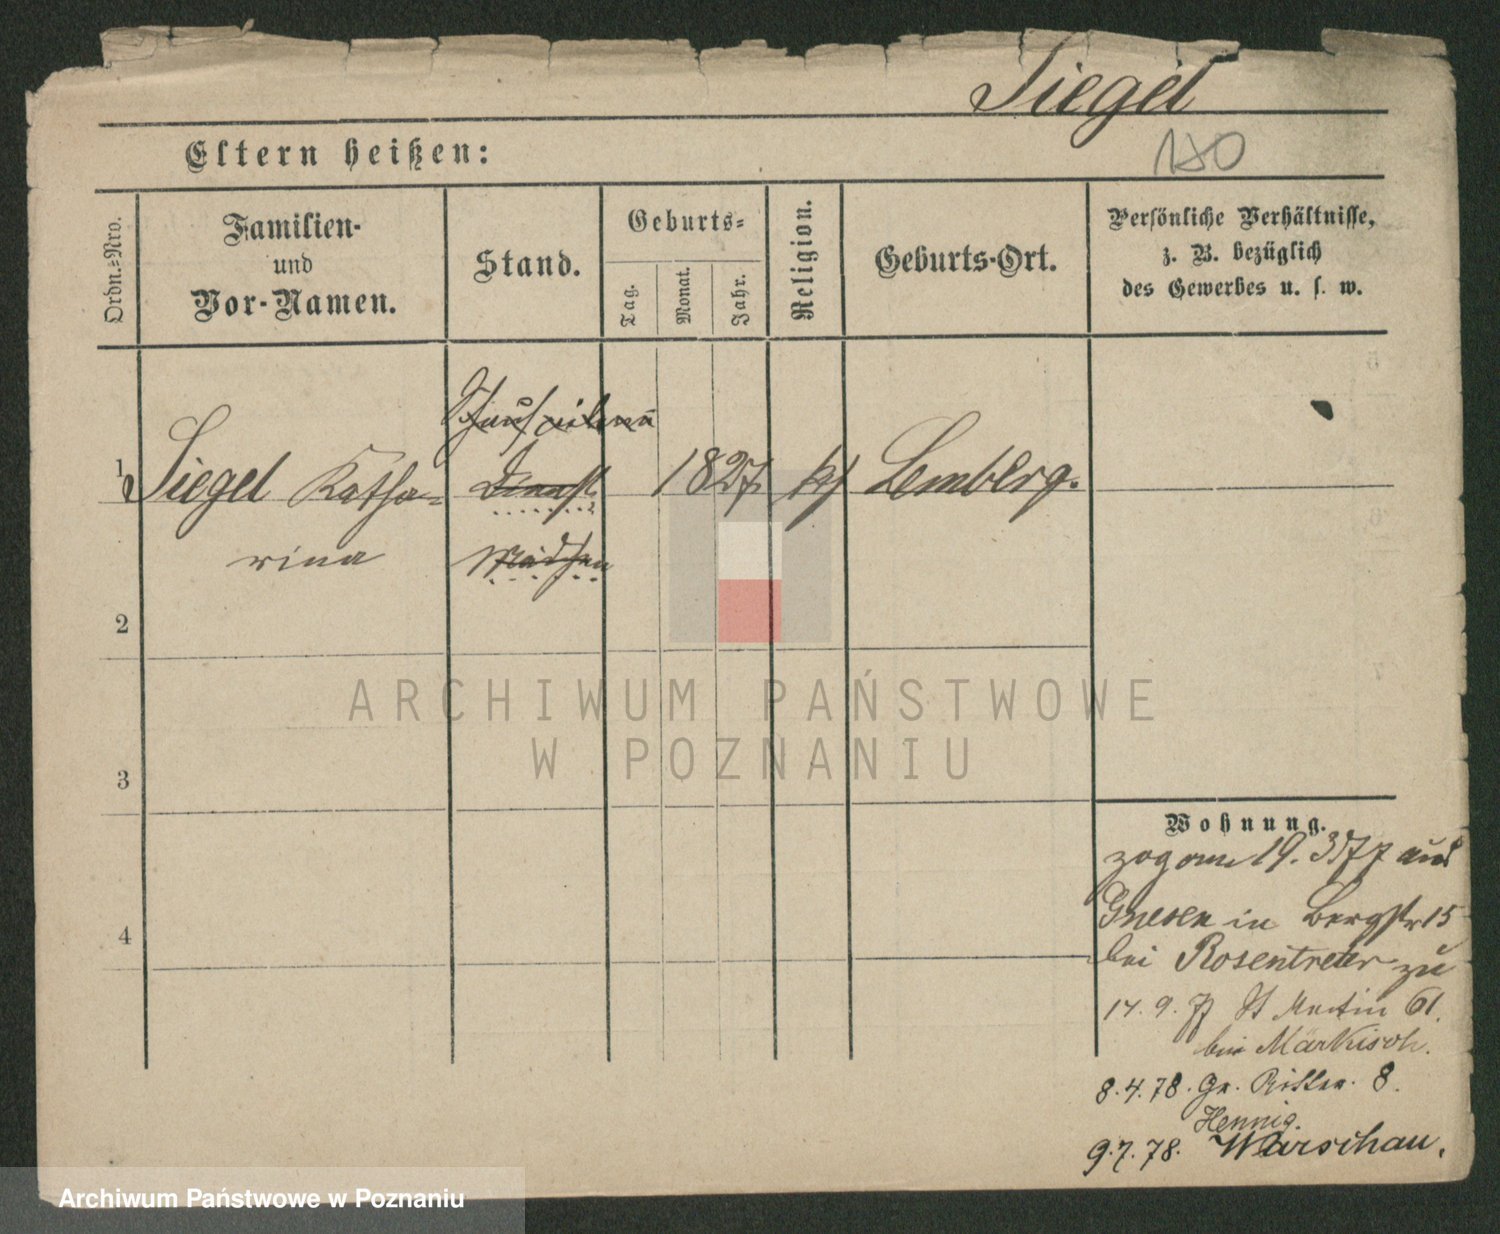 Siegel
Eltern heißen:
Ordn.=Nro.
Familien-
und
Vor-Namen.
Stand.
Geburts=
Tag.
Monat.
Jahr.
Religion.
Geburts-Ort.
Persönliche Verhältnisse,
z. B. bezüglich
des Gewerbes u. s. w.
1
Siegel Katha-
rina
Dienst
Mädchen
1827
Lemberg.
2
3
4
ARCHIWUM PAŃSTWOWE
W POZNANIU
Wohnung.
zog am 19. 3 77 aus
Gnesen in Bergstr 15
bei Rosentreter zu
17. 9. 77 St Martin 61.
bei Märkisch.
8. 4. 78. Gr. Ritter. 8.
Hennig.
9. 7. 78. Warschau.
Archiwum Państwowe w Poznaniu